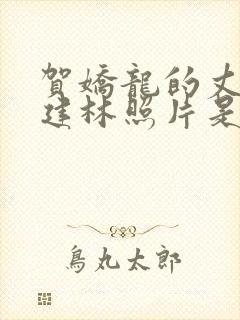 賀嬌龍的丈
建林照片是
鳥丸太郎